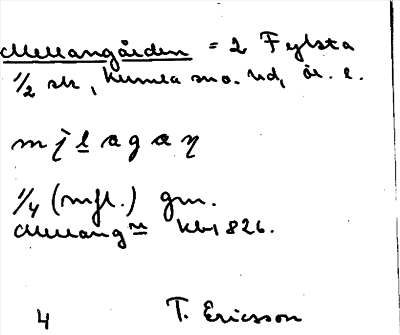 Mellangården = 2 Fylsta
1/2 sk, Kumla sn o. hd, Ör. l.
mj l a g a ɳ
1/4 (mfl.) gm.
Mellang:n kbl 826.
4 T. Ericsson